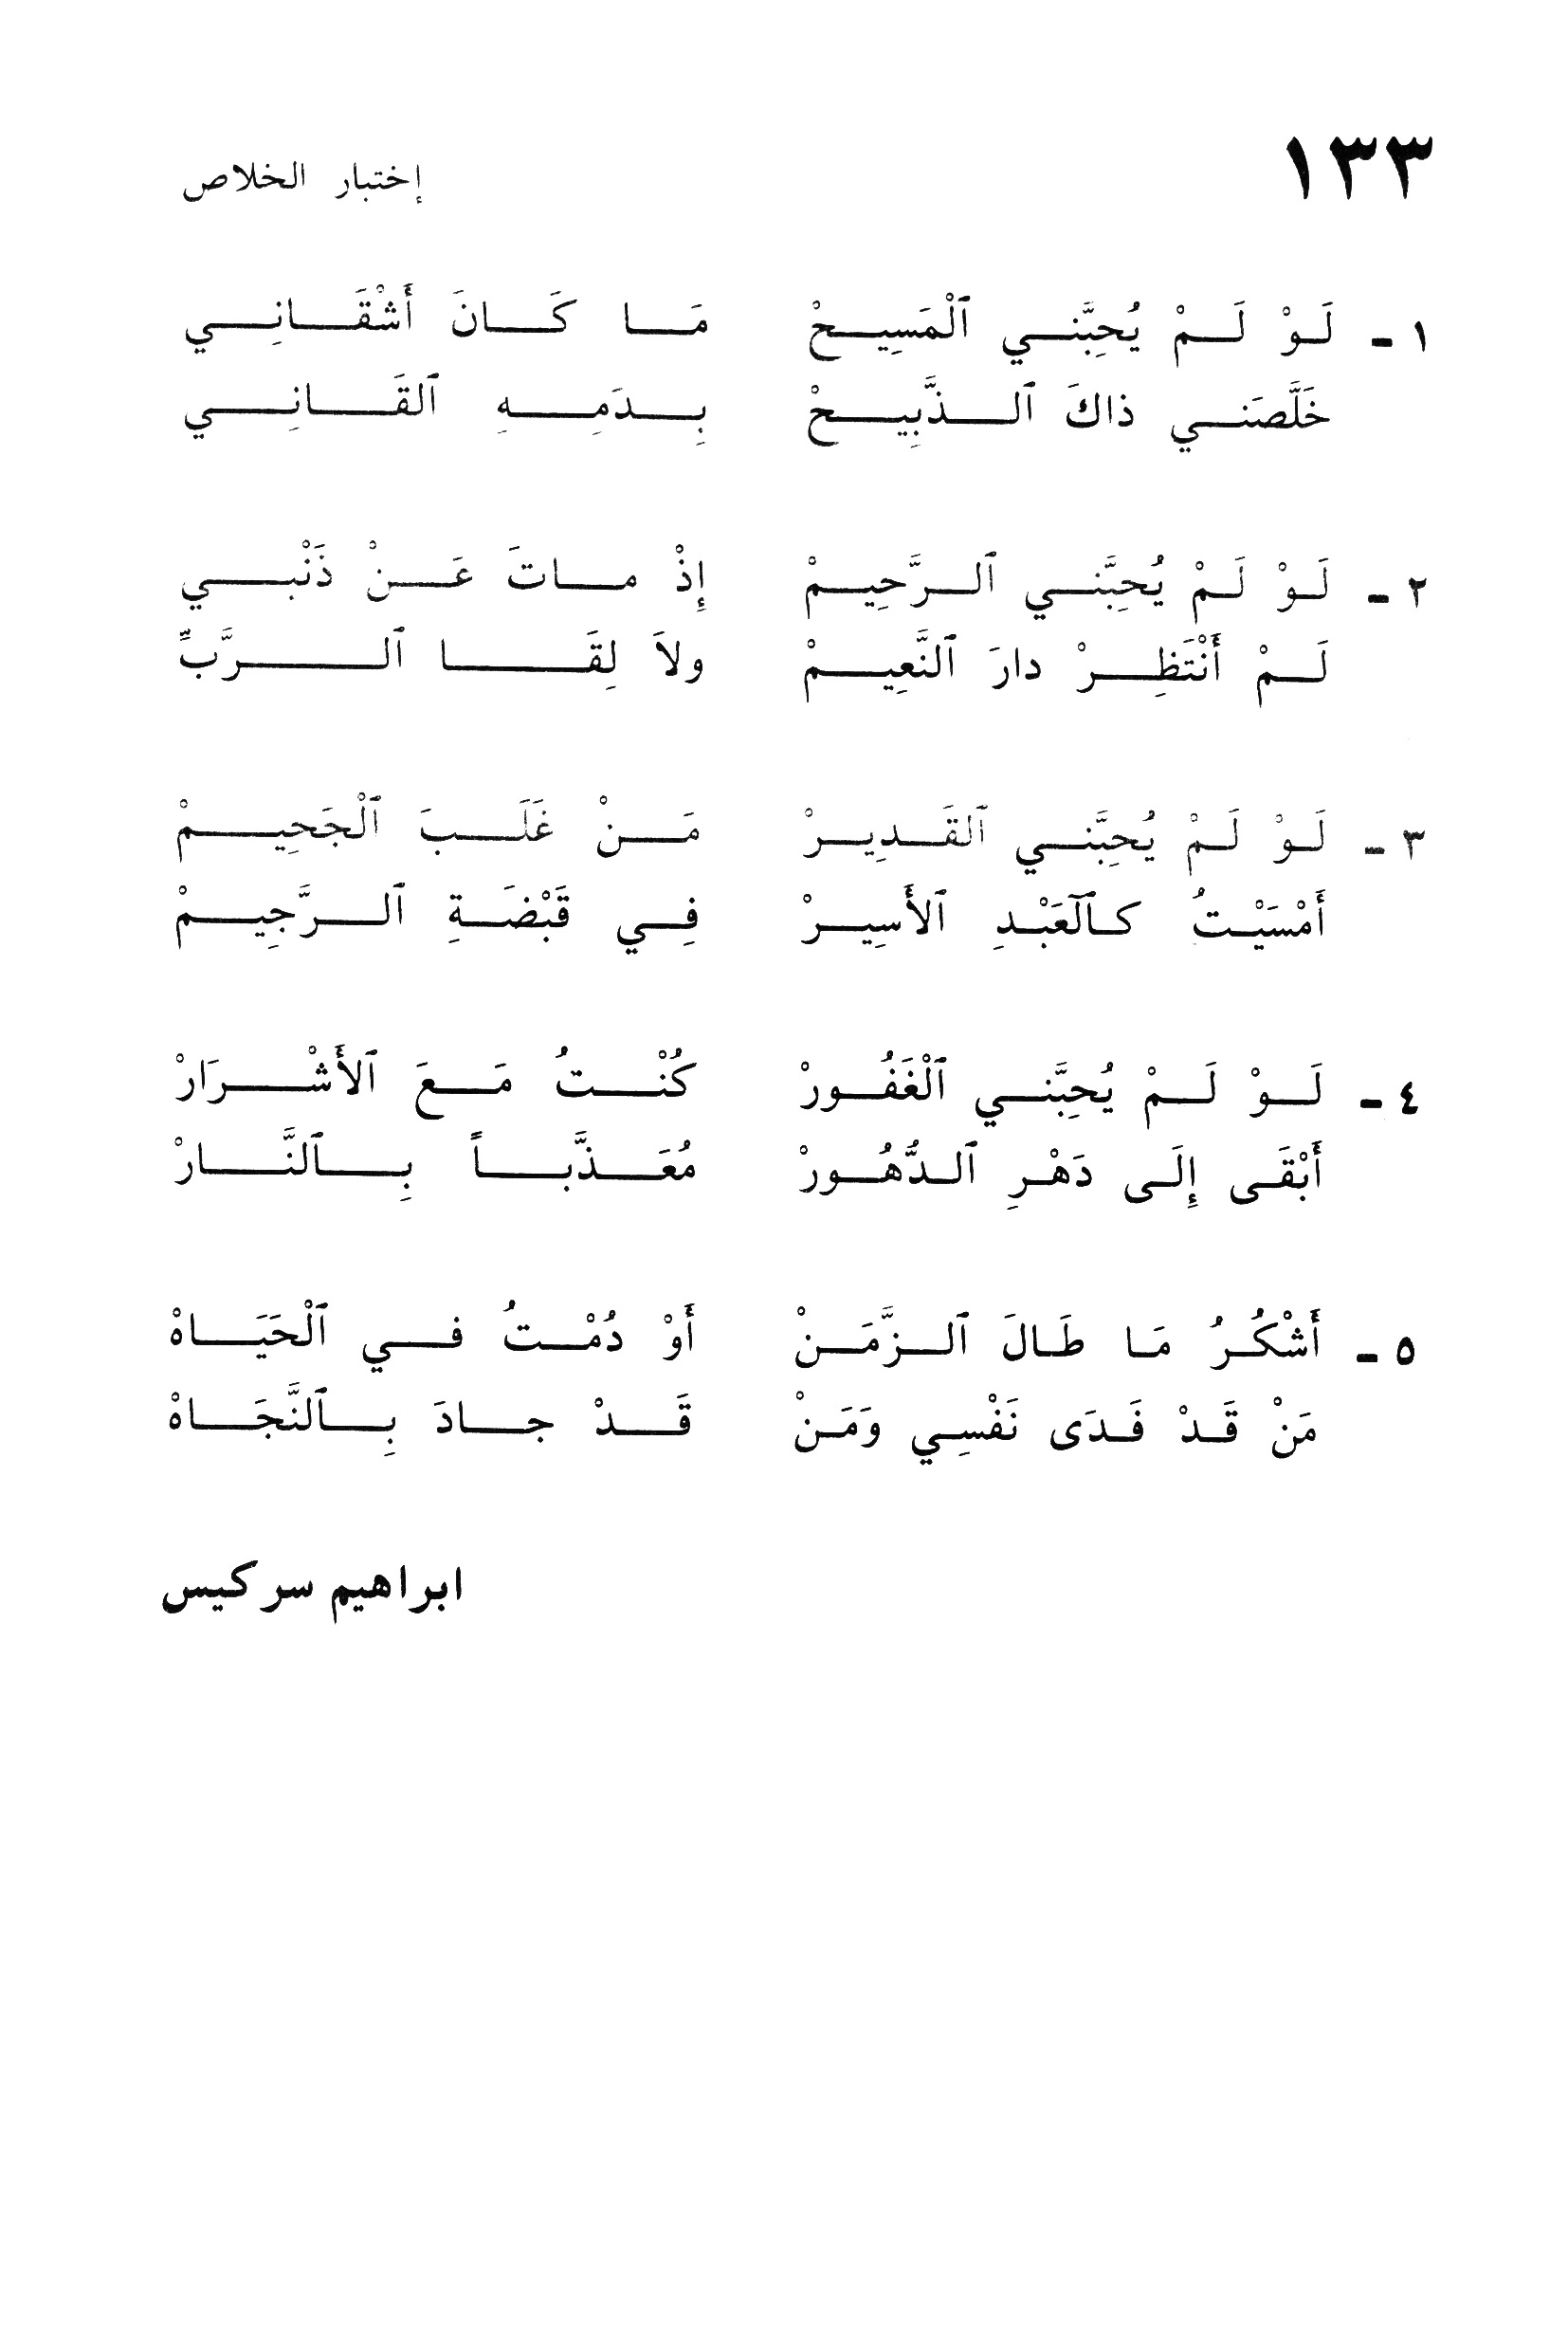 ١٣٣ إختبار الخلاص
١ - لَوْ لَمْ يُحِبَّني ٱلْمَسِيحْ مَا كَانَ أَشْقَانِي
خَلَّصَني ذاكَ ٱلذَّبِيحْ بِدَمِهِ ٱلقَانِي
٢ - لَوْ لَمْ يُحِبَّني ٱلرَّحِيمْ إِذْ ماتَ عَنْ ذَنْبي
لَمْ أَنْتَظِرْ دارَ ٱلنَّعِيمْ ولاَ لِقَا ٱلرَّبِّ
٣ - لَوْ لَمْ يُحِبَّني ٱلقَدِيرْ مَنْ غَلَبَ ٱلْجَحِيمْ
أَمْسَيْتُ كٱلعَبْدِ ٱلأَسِيرْ فِي قَبْضَةِ ٱلرَّجِيمْ
٤ - لَوْ لَمْ يُحِبَّني ٱلْغَفُورْ كُنْتُ مَعَ ٱلأَشْرَارْ
أَبْقَى إِلَى دَهْرِ ٱلدُّهُورْ مُعَذَّباً بِٱلنَّارْ
٥ - أَشْكُرُ مَا طَالَ ٱلزَّمَنْ أَوْ دُمْتُ في ٱلْحَيَاهْ
مَنْ قَدْ فَدَى نَفْسِي وَمَنْ قَدْ جادَ بِٱلنَّجَاهْ
ابراهيم سركيس